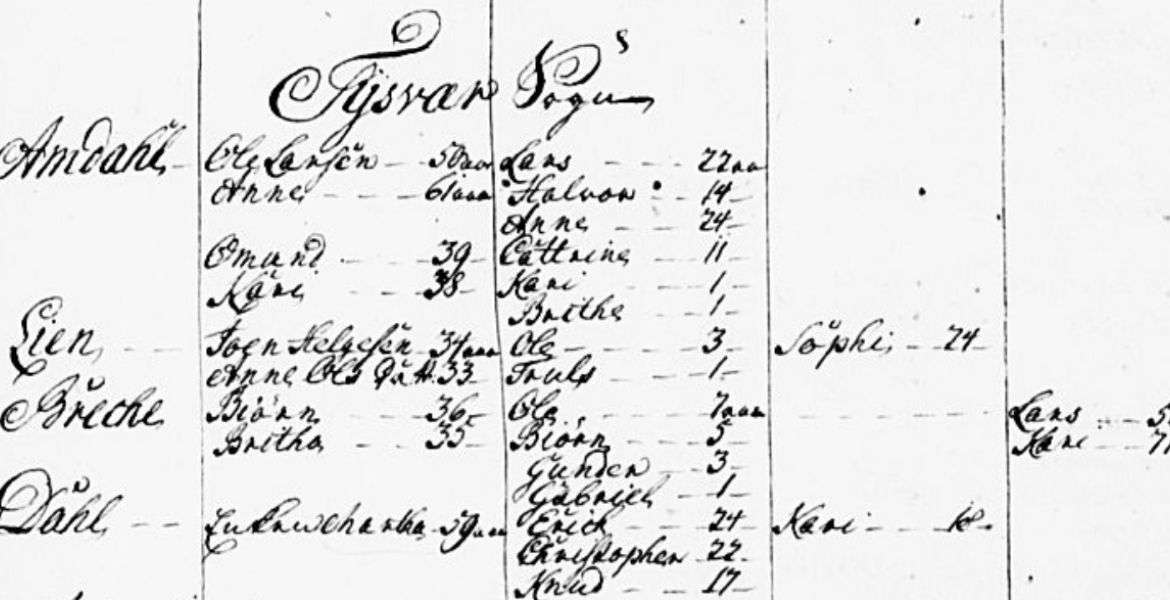 Tÿsvær Sogn
Amdahl Ole Larsen 50 aar Lars 22 aar
Anne 61 aar Halvor 14
Anne 24
Omund 39 Cattrine 11
Kari 38 Kari 1
Brithe 1
Lien Joen Helgesen 34 aar Ole 3 Sophi 24
Anne Ols Datt. 33 Truls 1
Breche Biörn 36 Ole 7 aar Lars
Britha 35 Biörn 5 Kari
Gunder 3
Gabriel 1
Dahl 59 aar Erich 24 Kari 18
Christopher 22
Knud 17